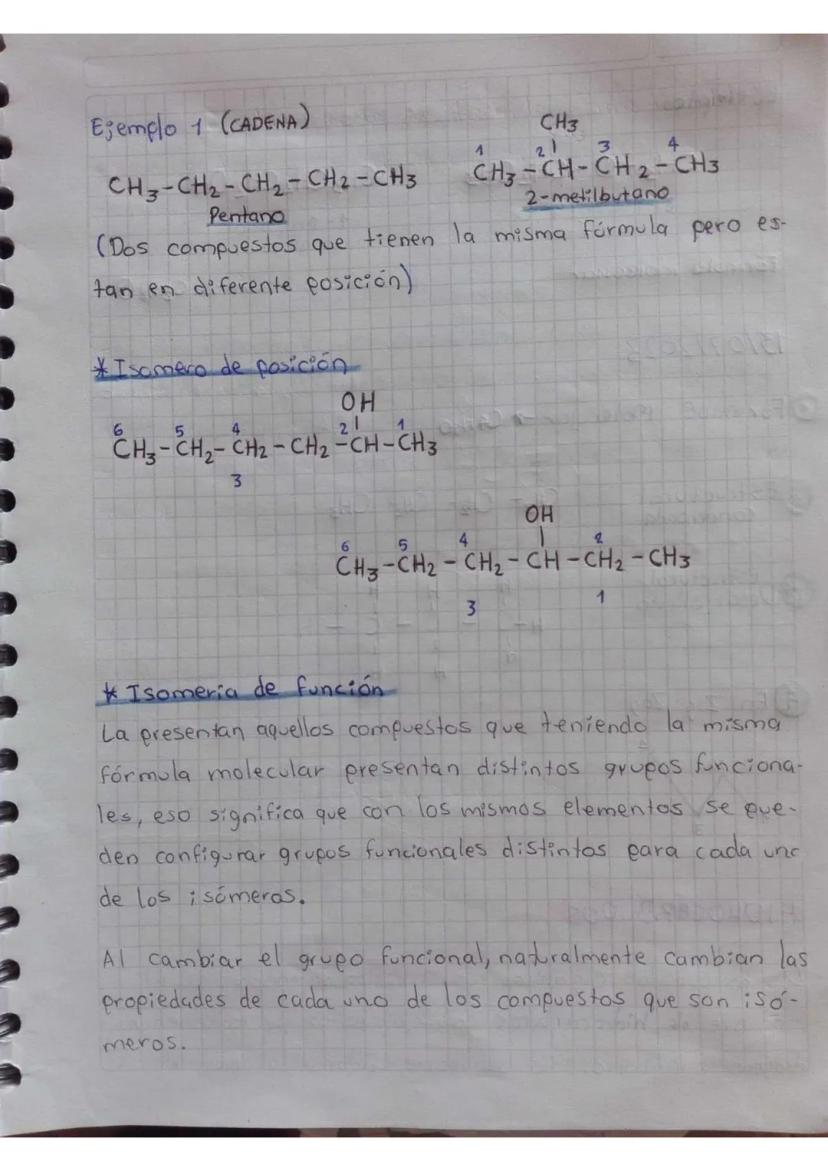 Ejemplo 1 (CADENA)
CH3
1 2 3 4
CH3-CH2-CH2-CH2-CH3 CH3-CH-CH2-CH3
Pentano 2-metilbutano
(Dos compuestos que tienen la misma fórmula pero es-
tan en diferente posición)
* Isomero de posición
OH
6 5 4 2 1
CH3-CH2-CH2-CH2-CH-CH3
3
OH
6 5 4 2
CH3-CH2-CH2-CH-CH2-CH3
3 1
* Isomeria de función
La presentan aquellos compuestos que teniendo la misma
fórmula molecular presentan distintos grupos funciona-
les, eso significa que con los mismos elementos se pue-
den configurar grupos funcionales distintos para cada uno
de los isómeros.
Al cambiar el grupo funcional, naturalmente cambian las
propiedades de cada uno de los compuestos que son isó-
meros.